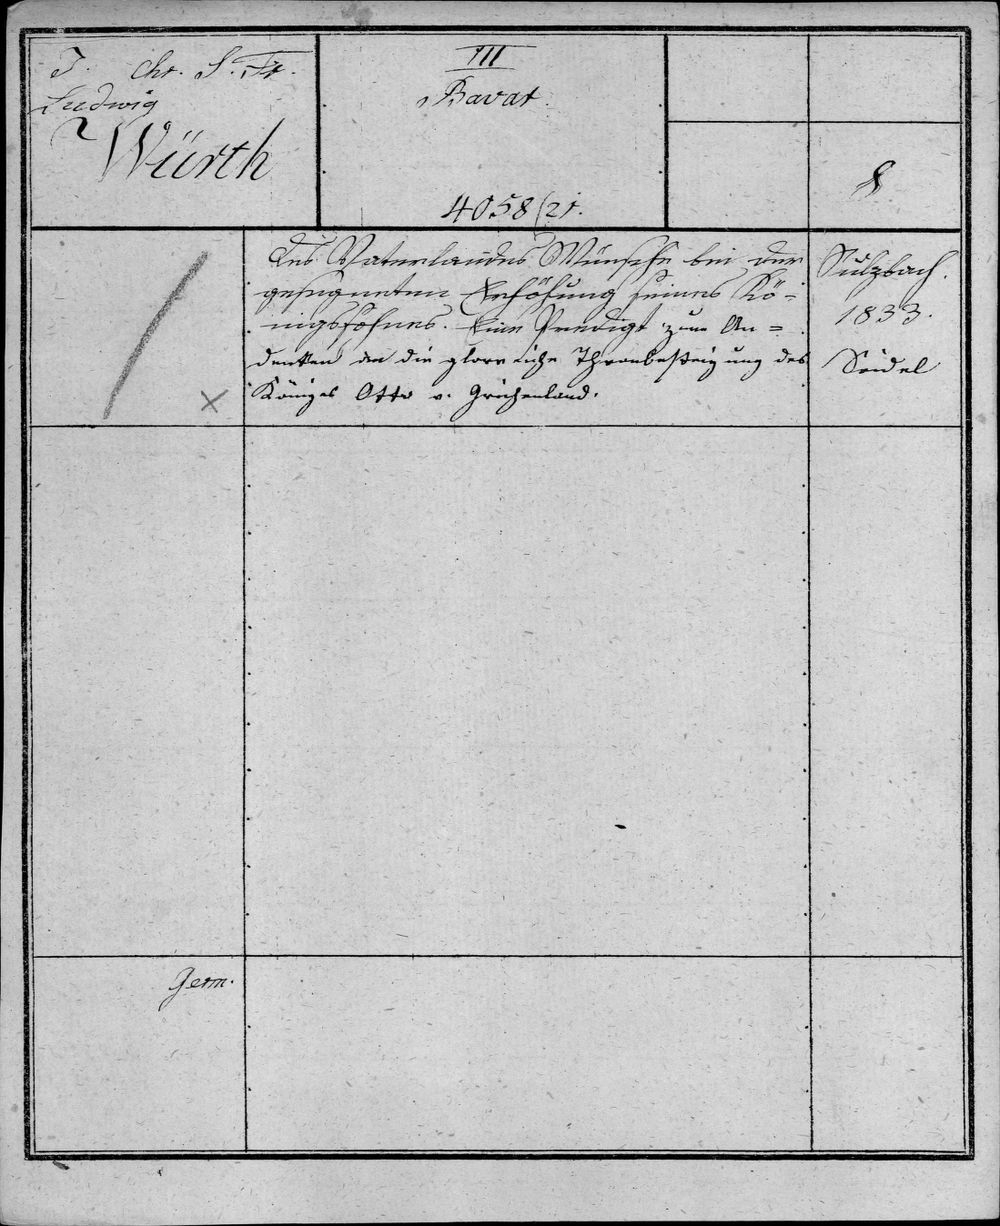 J. Chr. S. Fr.
Ludwig
Würth
III
Bavar.
4058/21.
8
Des Vaterlandes Wünsche bei der
gesegneten Erhöhung seines Kö-
nigssohnes. Eine Predigt zum An=
denken an die glorreiche Thronbesteigung des
Königs Otto v. Grichenland.
Sulzbach.
1833.
Seidel
Germ.